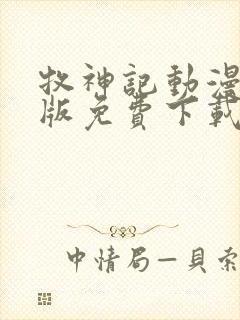 牧神記動漫
版免費下載
中情局—貝索